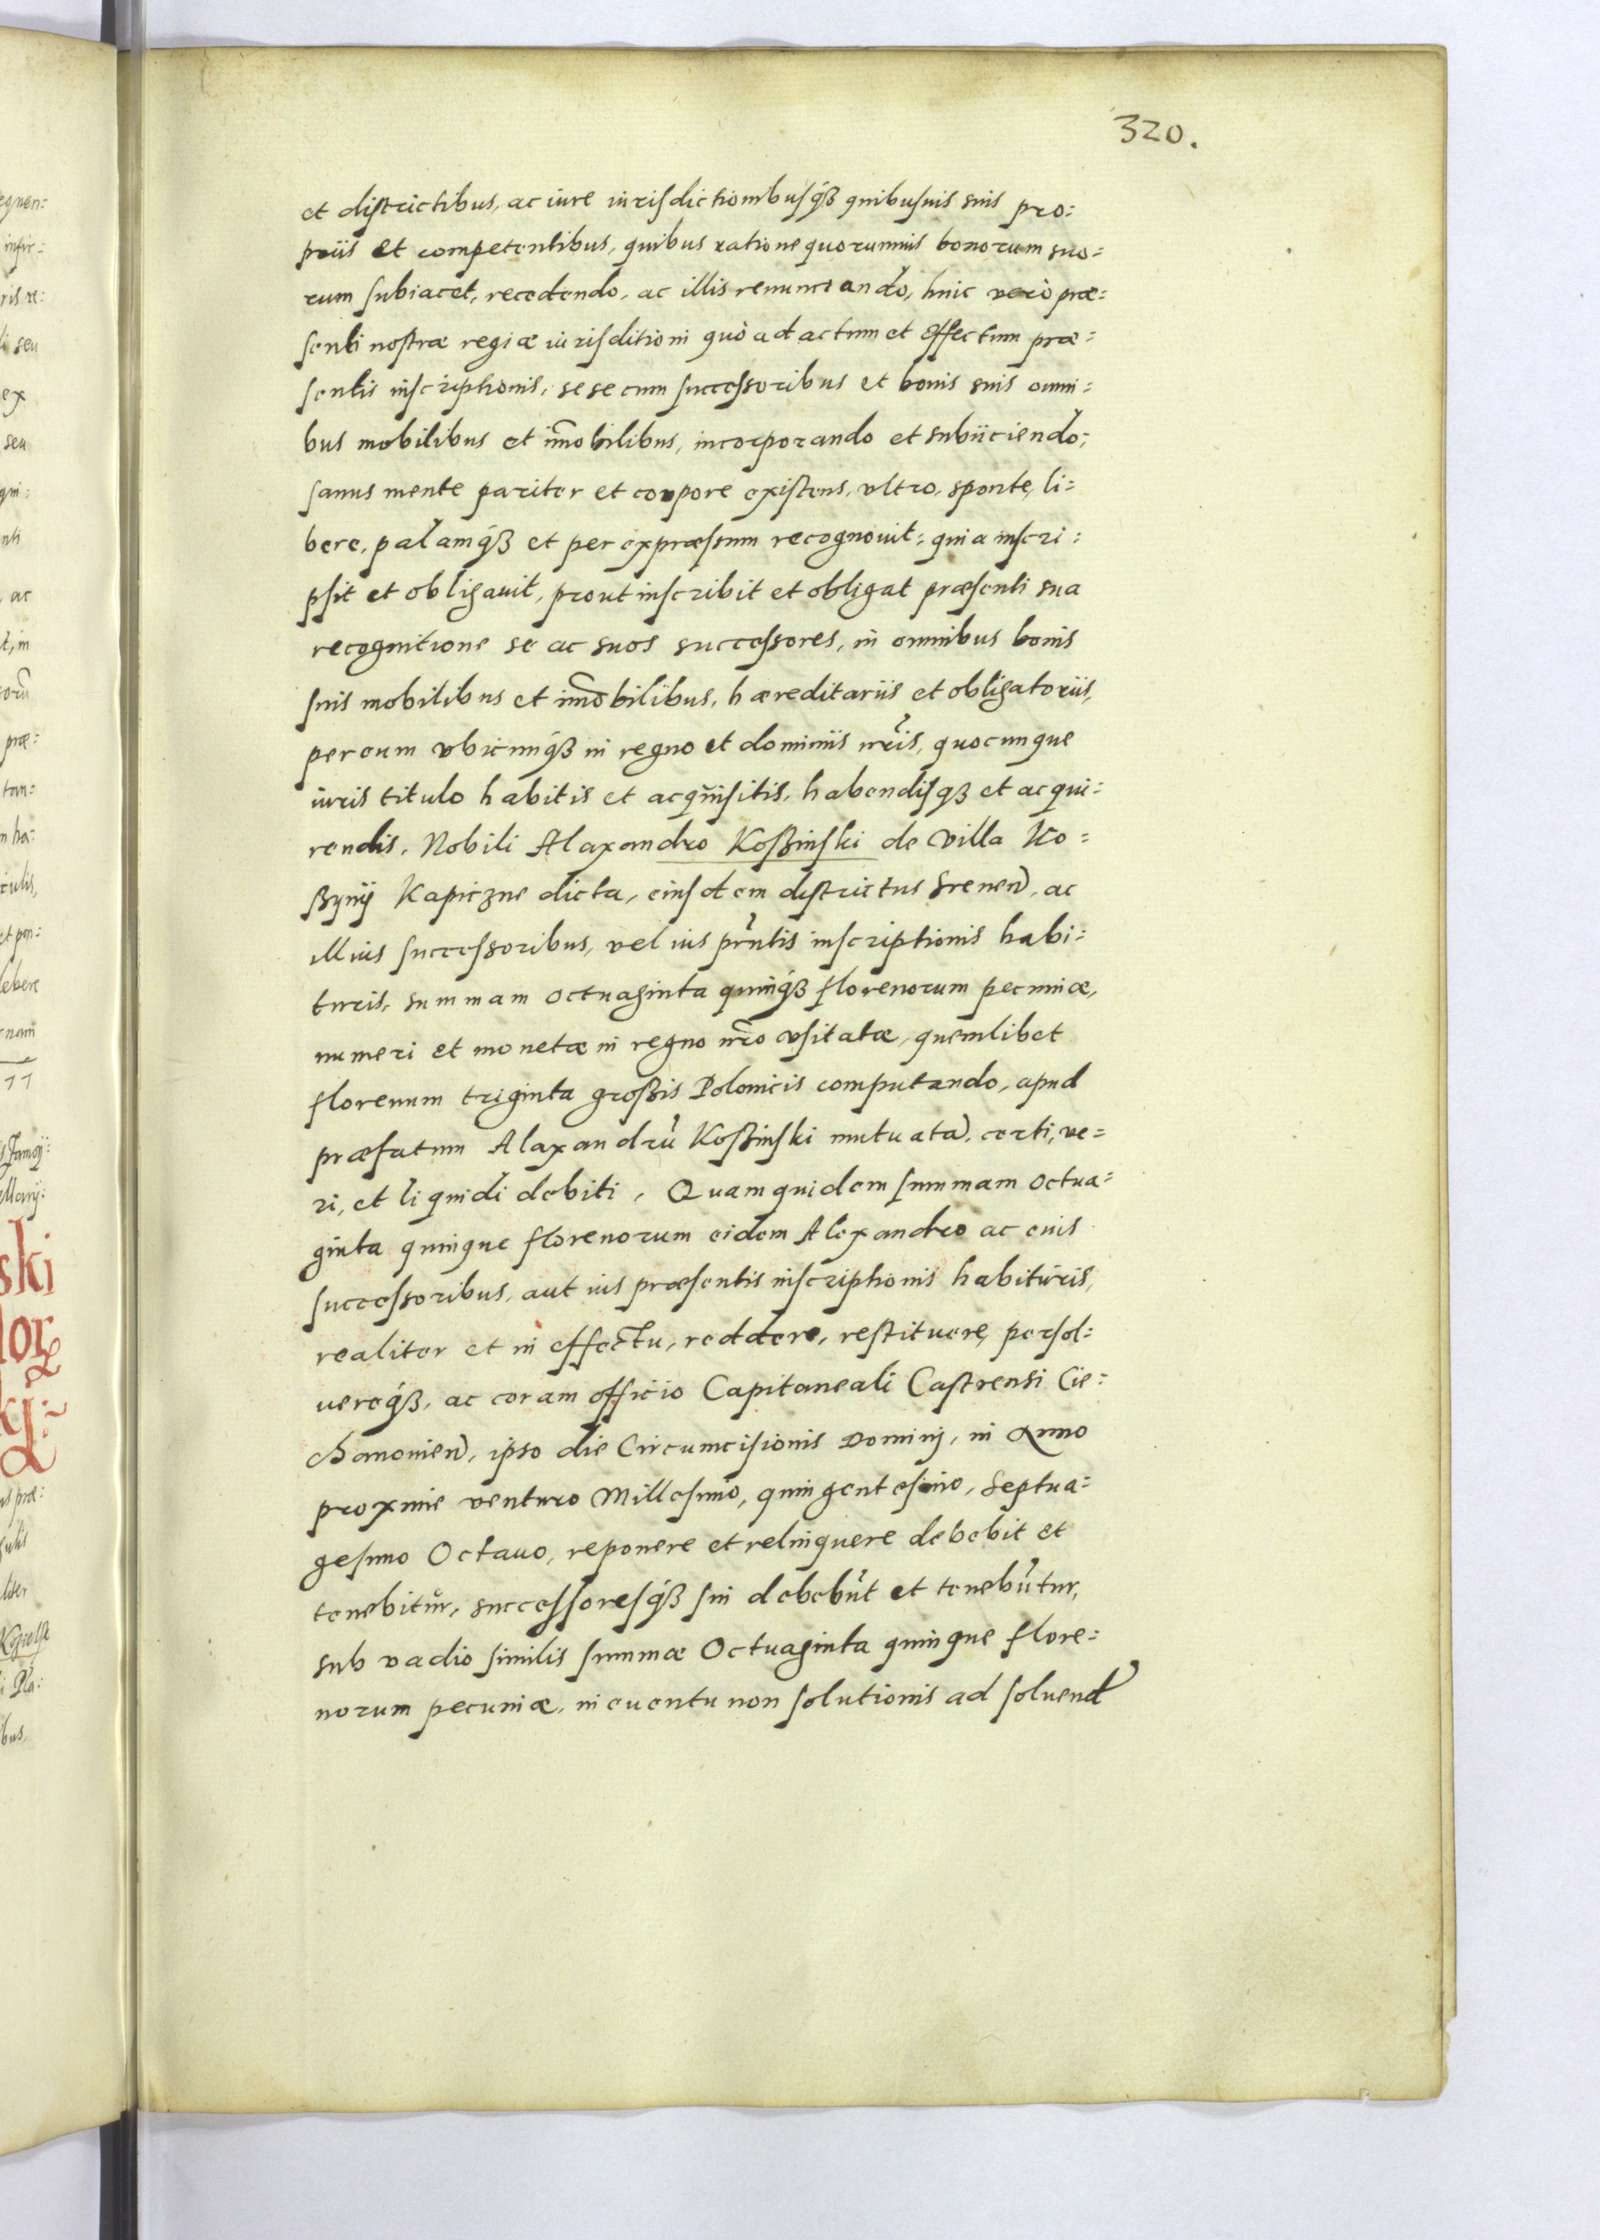 320.
et districtibus, ac iure iurisdictionibusq́ꝫ quibusuis suis pro=
priis et competentibus, quibus ratione quorumuis bonorum suo=
rum subiacet, recedendo, ac illis renunciando, huic verò præ=
senti nostræ regiæ iurisditioni quò ad actum et effectum præ=
sentis inscriptionis, sese cum successoribus et bonis suis omni=
bus mobilibus et im̃obilibus, incorporando et subiiciendo;
sanus mente pariter et corpore existens, vltro, sponte, li=
bere, palamq́ꝫ et per expræssum recognouit: quia inscri=
psit et obligauit, prout inscribit et obligat præsenti sua
recognitione se ac suos successores, in omnibus bonis
suis mobilibus et im̃obilibus, hæreditariis et obligatoriis,
per eum vbicunq́ꝫ in regno et dominiis nr̃is, quocunque
iuris titulo habitis et acquisitis, habendisqꝫ et acqui=
rendis, Nobili Alaxandro Koßinski de villa Ko=
ßynÿ Kapiczne dicta, eiusdem districtus Srenen̄, ac
illius successoribus, vel ius pr̃ntis inscriptionis habi=
turis, summam octuaginta quinq́ꝫ florenorum pecuniæ,
numeri et monetæ in regno nr̃o vsitatæ, quemlibet
florenum triginta großis Polonicis computando, apud
præfatum Alaxandrũ Koßinski mutuatã, certi, ve=
ri, et liquidi debiti. Quamquidem summam octua=
ginta quinque florenorum eidem Alexandro ac eius
successoribus, aut ius præsentis inscriptionis habituris,
realiter et in effectu, reddere, restituere, persol=
uereq́ꝫ, ac coram officio Capitaneali Castrensi Cie=
chanouien̄, ipso die Circumcisionis Dominj, in Anno
proxime venturo Millesimo, quingentesimo, Septua=
gesimo Octauo, reponere et relinquere debebit et
tenebitur, successoresq́ꝫ sui debebũt et tenebũtur,
sub vadio similis summæ Octuaginta quinque flore=
norum pecuniæ, in euentu non solutionis ad soluend̄